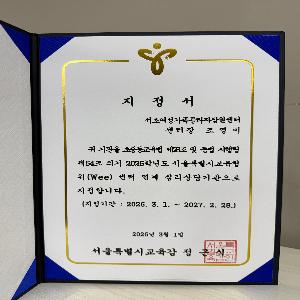 지 정 서
서초여성가족플라자잠원센터
센터장 조 영 미
귀 기관을 초·중등교육법 제28조 및 동법 시행령
제54조 의거 2026학년도 서울특별시교육청
위(Wee) 센터 연계 심리상담기관으로
지정합니다.
(지정기간 : 2026. 3. 1. ~ 2027. 2. 28.)
2026년 3월 1일
서울특별시교육감 정 근 식